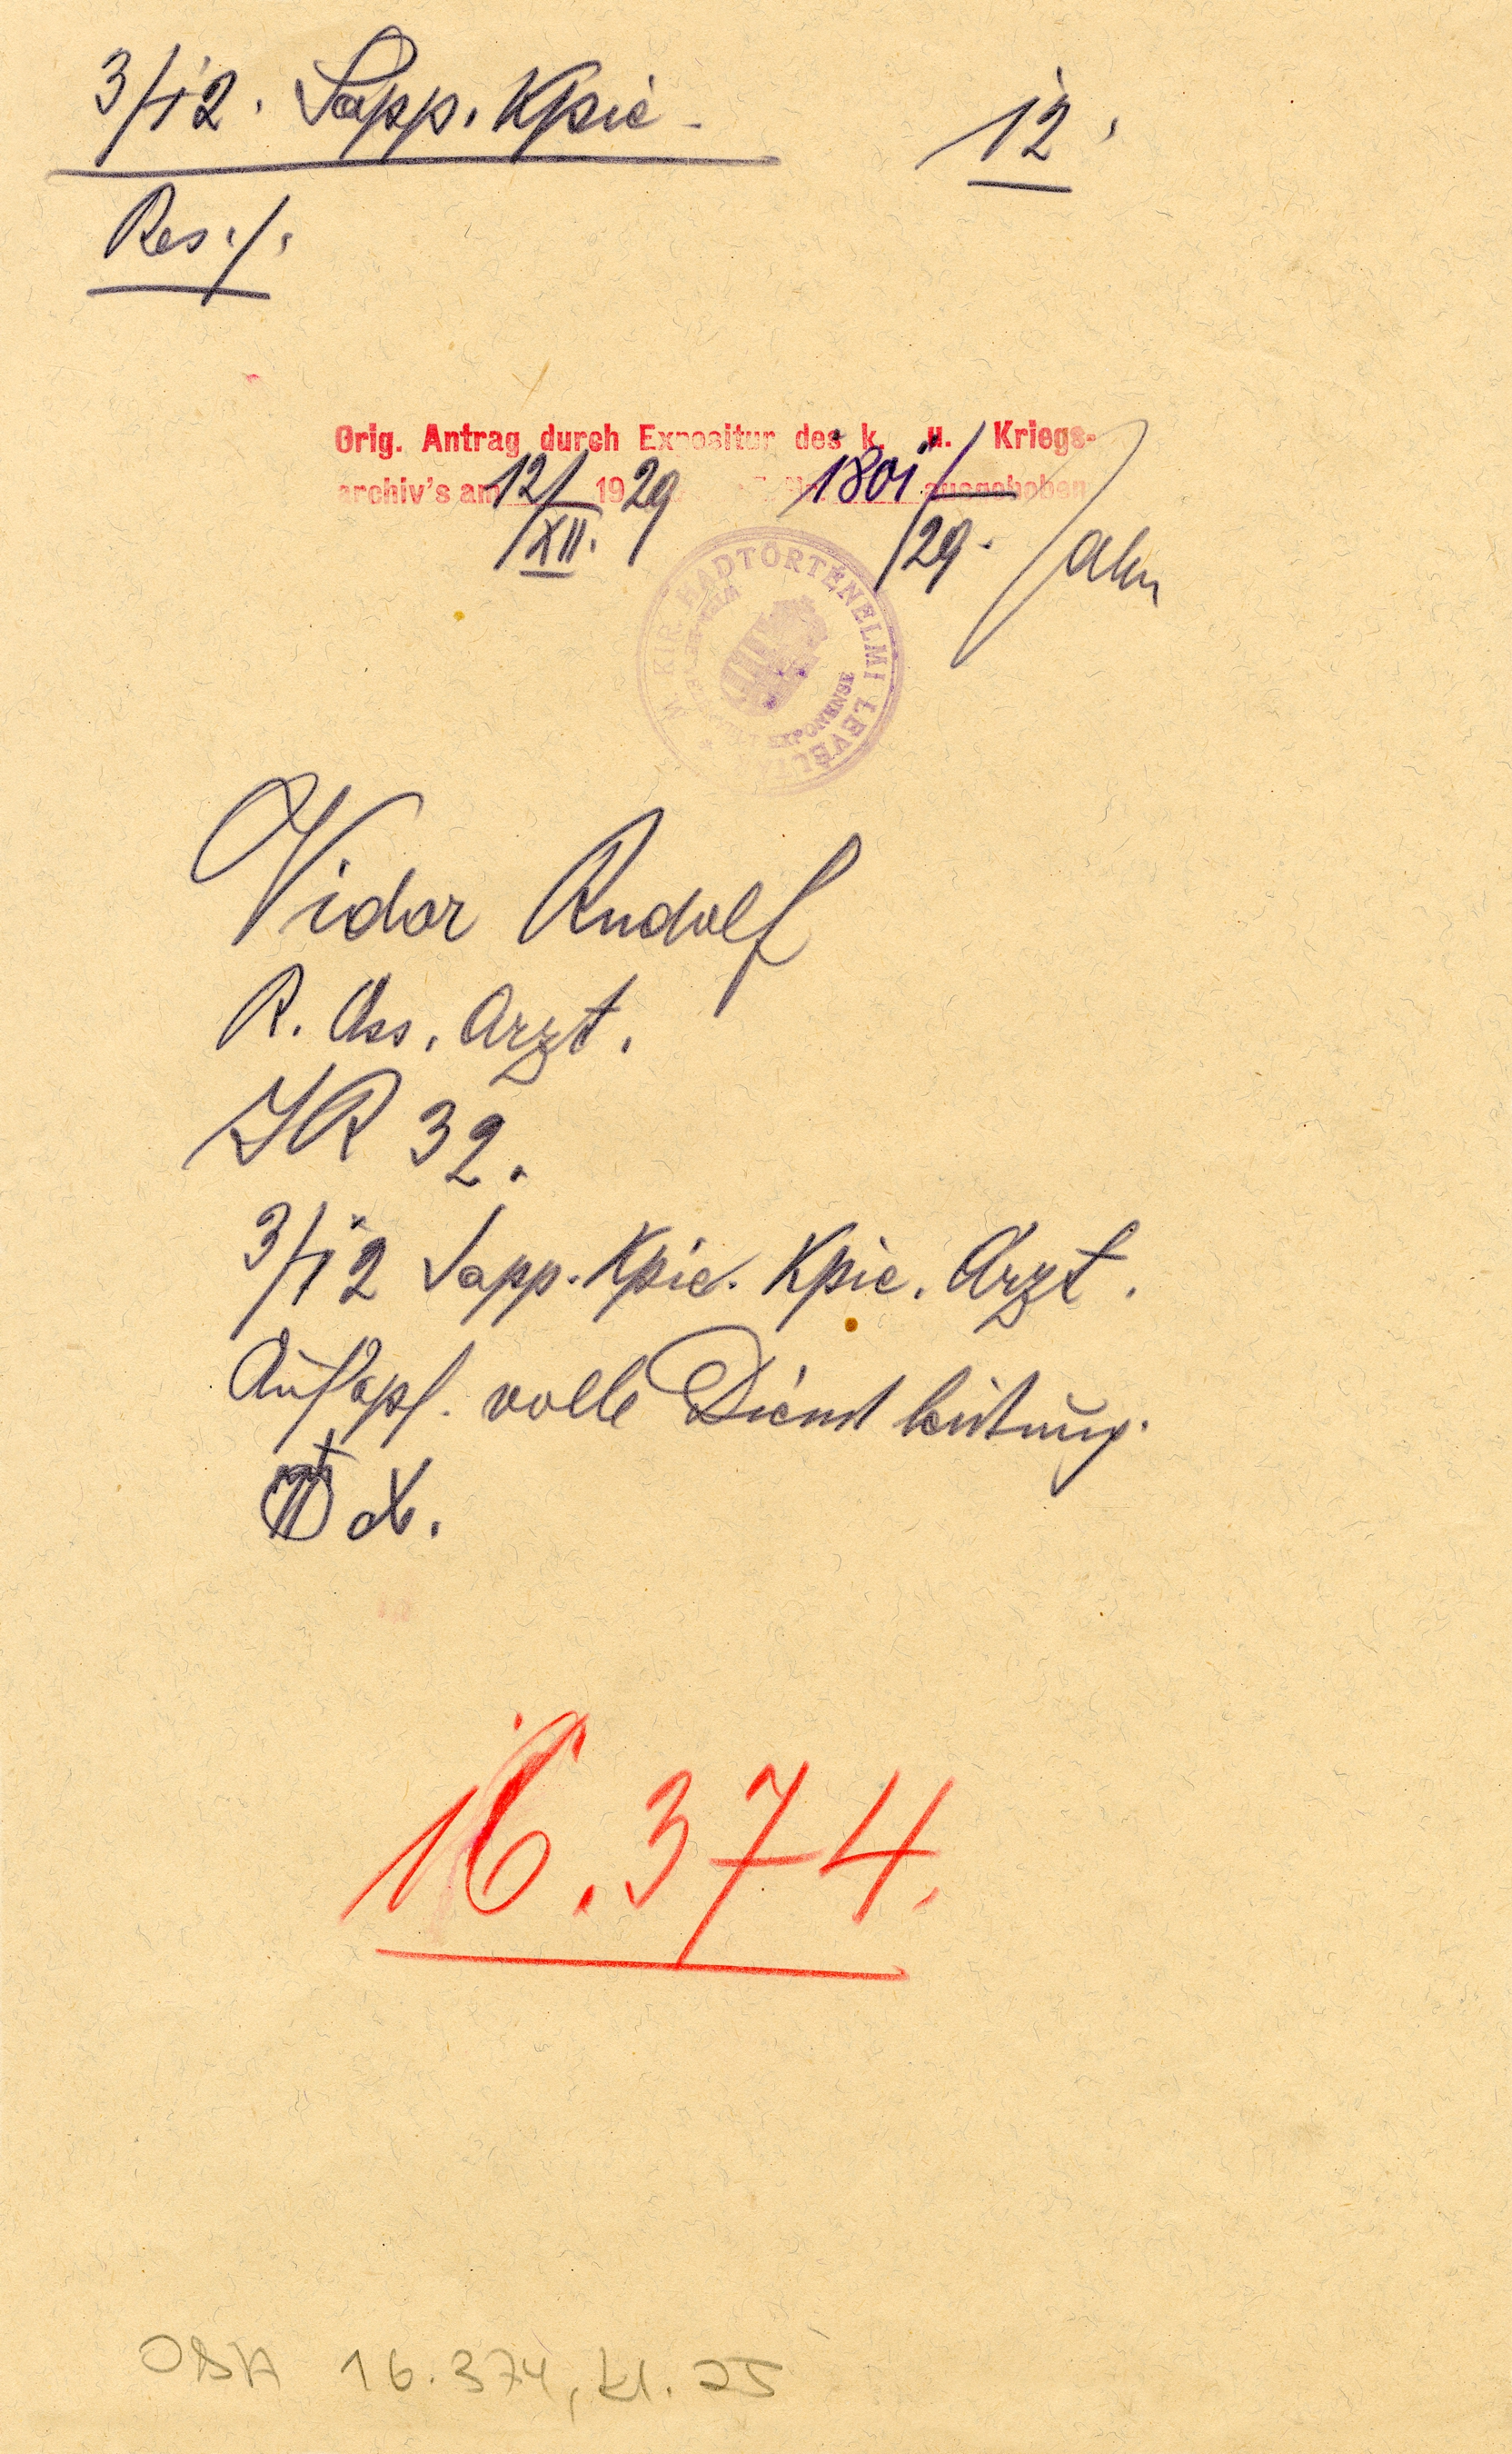 3/12. Sapp. Kpie.
12.
Res./.
Orig. Antrag durch Expositur des k. u. Kriegs-
archiv's am 12/XII. 1929 1801/29. ausgehoben
Jahn
M. KIR. HADTÖRTÉNELMI LEVÉLTÁR
EXPONENSE
Vidor Rudolf
R. Ass. Arzt.
IR 32.
3/12 Sapp. Kpie. Kpie. Arzt.
Aufopf. volle Dienstleistung.
16.374.
OBA 16.374, kt. 25